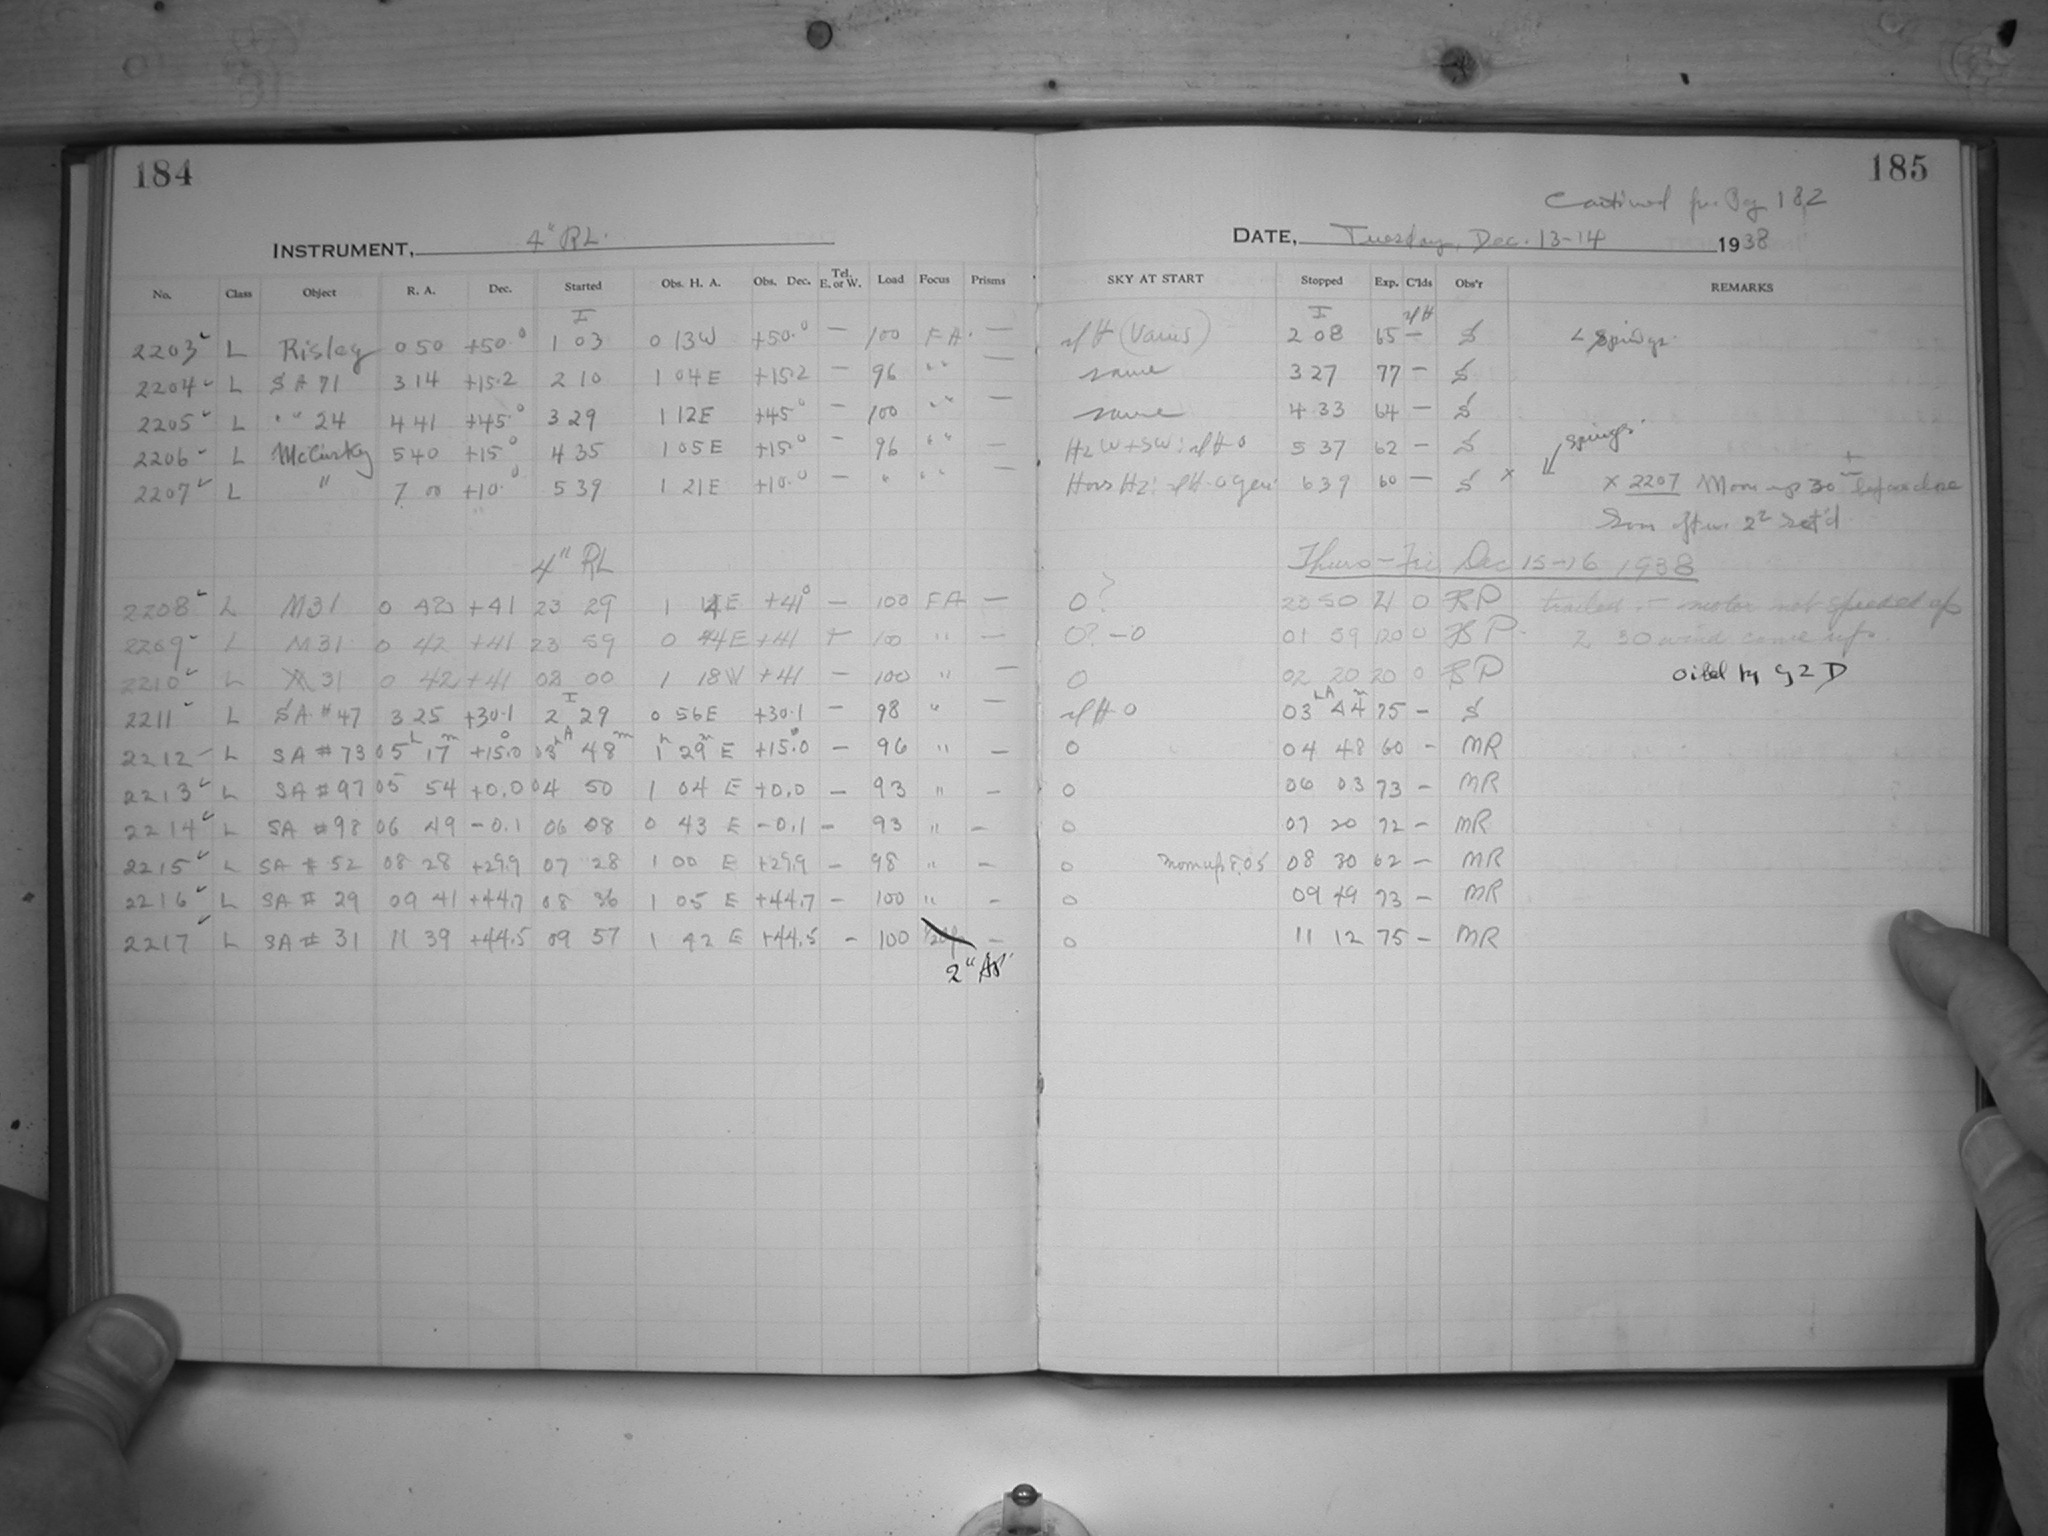 184
185
Continued fr. Pg 182
INSTRUMENT, 4" RL.
DATE, Tuesday, Dec. 13-14 1938
No. Class Object R. A. Dec. Started Obs. H. A. Obs. Dec. Tel. E. or W. Load Focus Prisms SKY AT START Stopped Exp. C'lds Obs'r REMARKS
2203 L Risley 0 50 +50.0 1 03 0 13W +50.0 — 100 FA. — (Varies) 2 08 65 — S
2204 L SA 71 3 14 +15.2 2 10 1 04E +15.2 — 96 " " — same 3 27 77 — S
2205 L " " 24 4 41 +45.0 3 29 1 12E +45.0 — 100 " " — same 4 33 64 — S
2206 L McCuskey 5 40 +15.0 4 35 1 05E +15.0 — 96 " " — Hz W + SW: 5 37 62 — S
springs.
2207 L " 7 00 +10.0 5 39 1 21E +10.0 — " " " — 6 39 60 — S x x 2207 Moon up 30 before close
4" RL
Thurs-Fri Dec 15-16 1938
2208 L M31 0 42 +41 23 29 1 14E +41° — 100 FA — 0? 23 50 21 0 BP trailed — motor not speeded up
2209 L M31 0 42 +41 23 59 0 44E +41 — 100 " — 0?-0 01 59 120 0 BP 2 30 wind came up.
2210 L M31 0 42 +41 02 00 1 18W +41 — 100 " — 0 02 20 20 0 BP oiled by G 2 D
2211 L SA #47 3 25 +30.1 2 29 0 56E +30.1 — 98 " — 03 44 75 — S
2212 L SA #73 05h 17m +15.0 03h 48m 1h 29m E +15.0 — 96 " — 0 04 48 60 — MR
2213 L SA #97 05 54 +0.0 04 50 1 04 E +0.0 — 93 " — 0 06 03 73 — MR
2214 L SA #98 06 49 -0.1 06 08 0 43 E -0.1 — 93 " — 0 07 20 72 — MR
2215 L SA # 52 08 28 +29.9 07 28 1 00 E +29.9 — 98 " — 0 moon up 8.05 08 30 62 — MR
2216 L SA # 29 09 41 +44.7 08 36 1 05 E +44.7 — 100 " — 0 09 49 73 — MR
2217 L SA # 31 11 39 +44.5 09 57 1 42 E +44.5 — 100 — 0 11 12 75 — MR
2" Ap